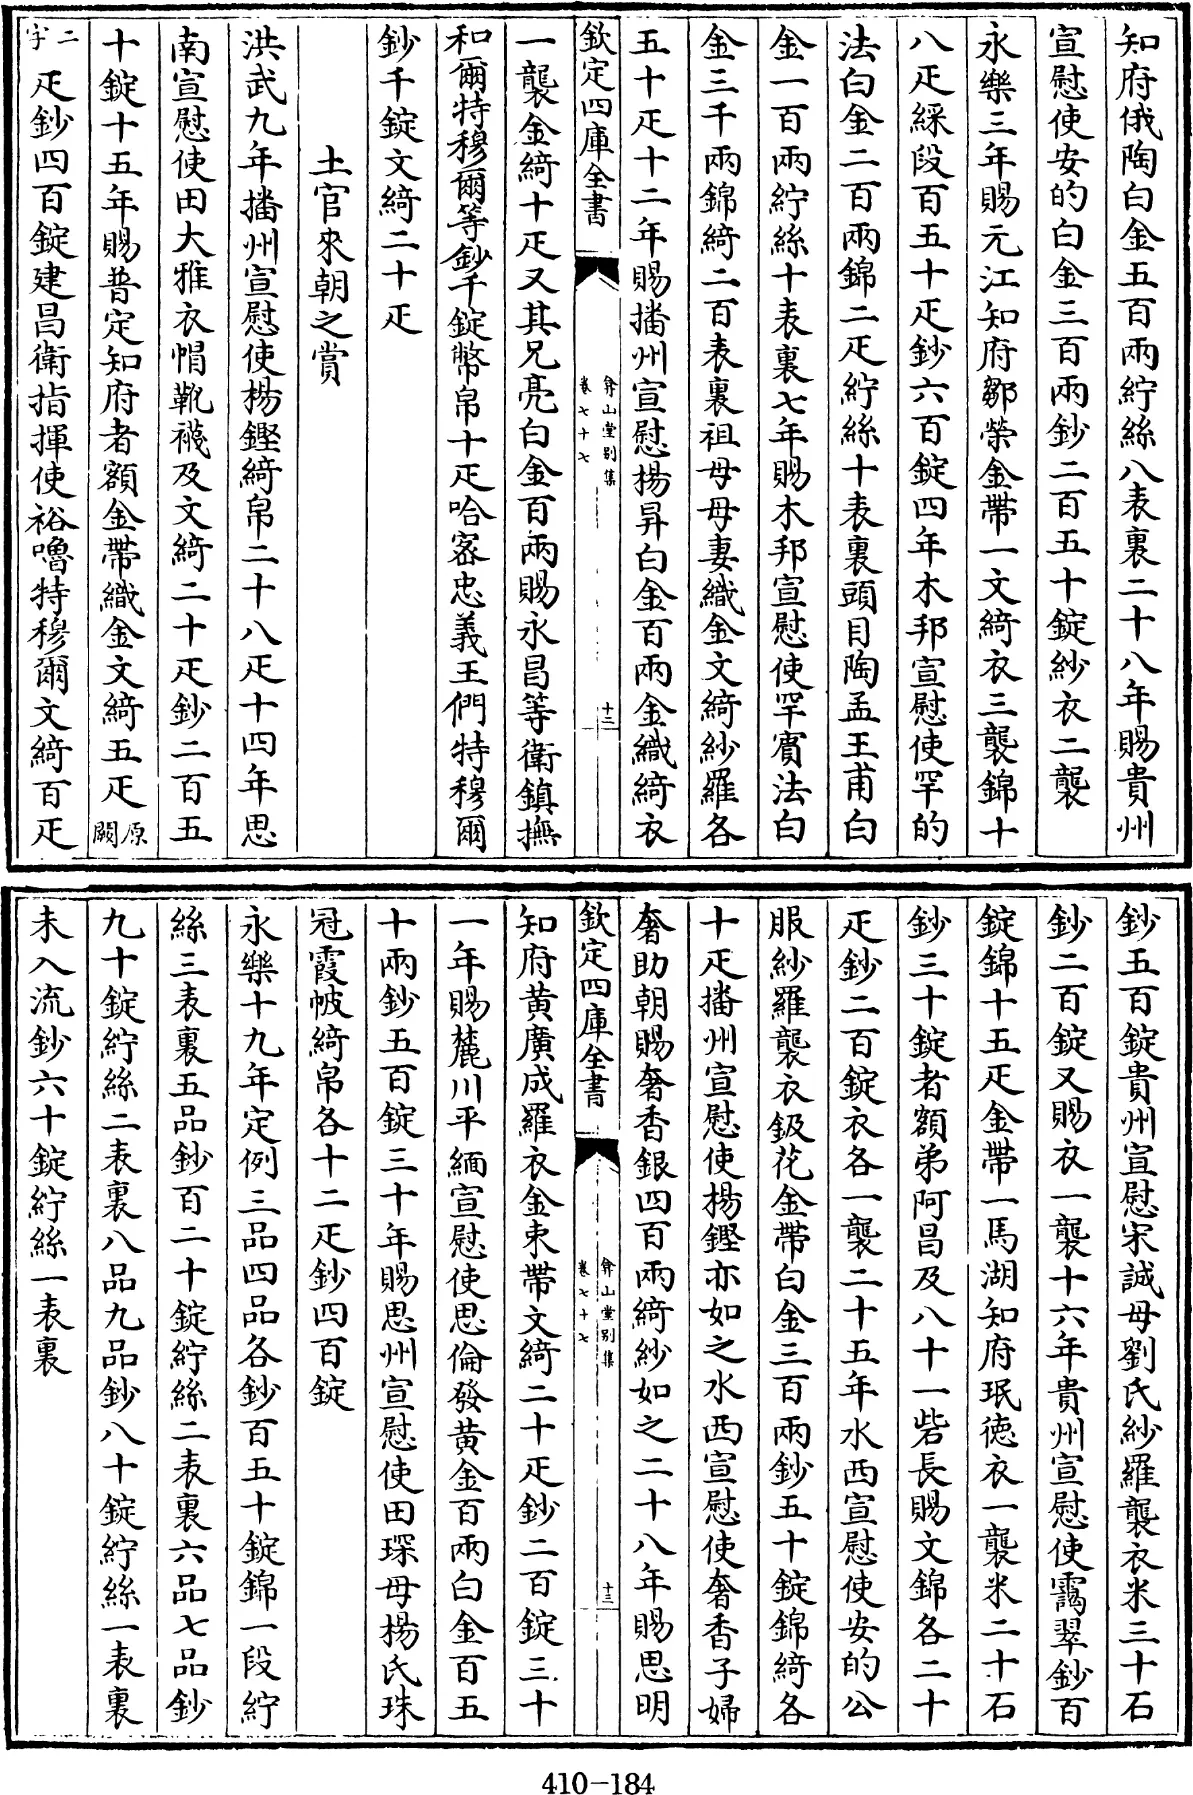 知府俄陶白金五百兩紵絲八表裏二十八年賜貴州
宣慰使安的白金三百兩鈔二百五十錠紗衣二襲
永樂三年賜元江知府鄒榮金帶一文綺衣三襲錦十
八疋綵段百五十疋鈔六百錠四年木邦宣慰使罕的
法白金二百兩錦二疋紵絲十表裏頭目陶孟王甫白
金一百兩紵絲十表裏七年賜木邦宣慰使罕賓法白
金三千兩錦綺二百表裏祖母母妻織金文綺紗羅各
五十疋十二年賜播州宣慰楊昇白金百兩金織綺衣
欽定四庫全書
弇山堂別集
卷七十七
十二
一襲金綺十疋又其兄亮白金百兩賜永昌等衛鎮撫
和爾特穆爾等鈔千錠幣帛十疋哈宻忠義王們特穆爾
鈔千錠文綺二十疋
土官來朝之賞
洪武九年播州宣慰使楊鏗綺帛二十八疋十四年思
南宣慰使田大雅衣帽靴襪及文綺二十疋鈔二百五
十錠十五年賜普定知府者額金帶織金文綺五疋原闕
二字疋鈔四百錠建昌衛指揮使裕嚕特穆爾文綺百疋
鈔五百錠貴州宣慰宋誠母劉氏紗羅襲衣米三十石
鈔二百錠又賜衣一襲十六年貴州宣慰使靄翠鈔百
錠錦十五疋金帶一馬湖知府珉德衣一襲米二十石
鈔三十錠者額弟阿昌及八十一砦長賜文錦各二十
疋鈔二百錠衣各一襲二十五年水西宣慰使安的公
服紗羅襲衣鈒花金帶白金三百兩鈔五十錠錦綺各
十疋播州宣慰使楊鏗亦如之水西宣慰使奢香子婦
奢助朝賜奢香銀四百兩綺紗如之二十八年賜思明
欽定四庫全書
弇山堂別集
卷七十七
十三
知府黃廣成羅衣金束帶文綺二十疋鈔二百錠三十
一年賜麓川平緬宣慰使思倫發黃金百兩白金百五
十兩鈔五百錠三十年賜思州宣慰使田琛母楊氏珠
冠霞帔綺帛各十二疋鈔四百錠
永樂十九年定例三品四品各鈔百五十錠錦一段紵
絲三表裏五品鈔百二十錠紵絲二表裏六品七品鈔
九十錠紵絲二表裏八品九品鈔八十錠紵絲一表裏
未入流鈔六十錠紵絲一表裏
410-184